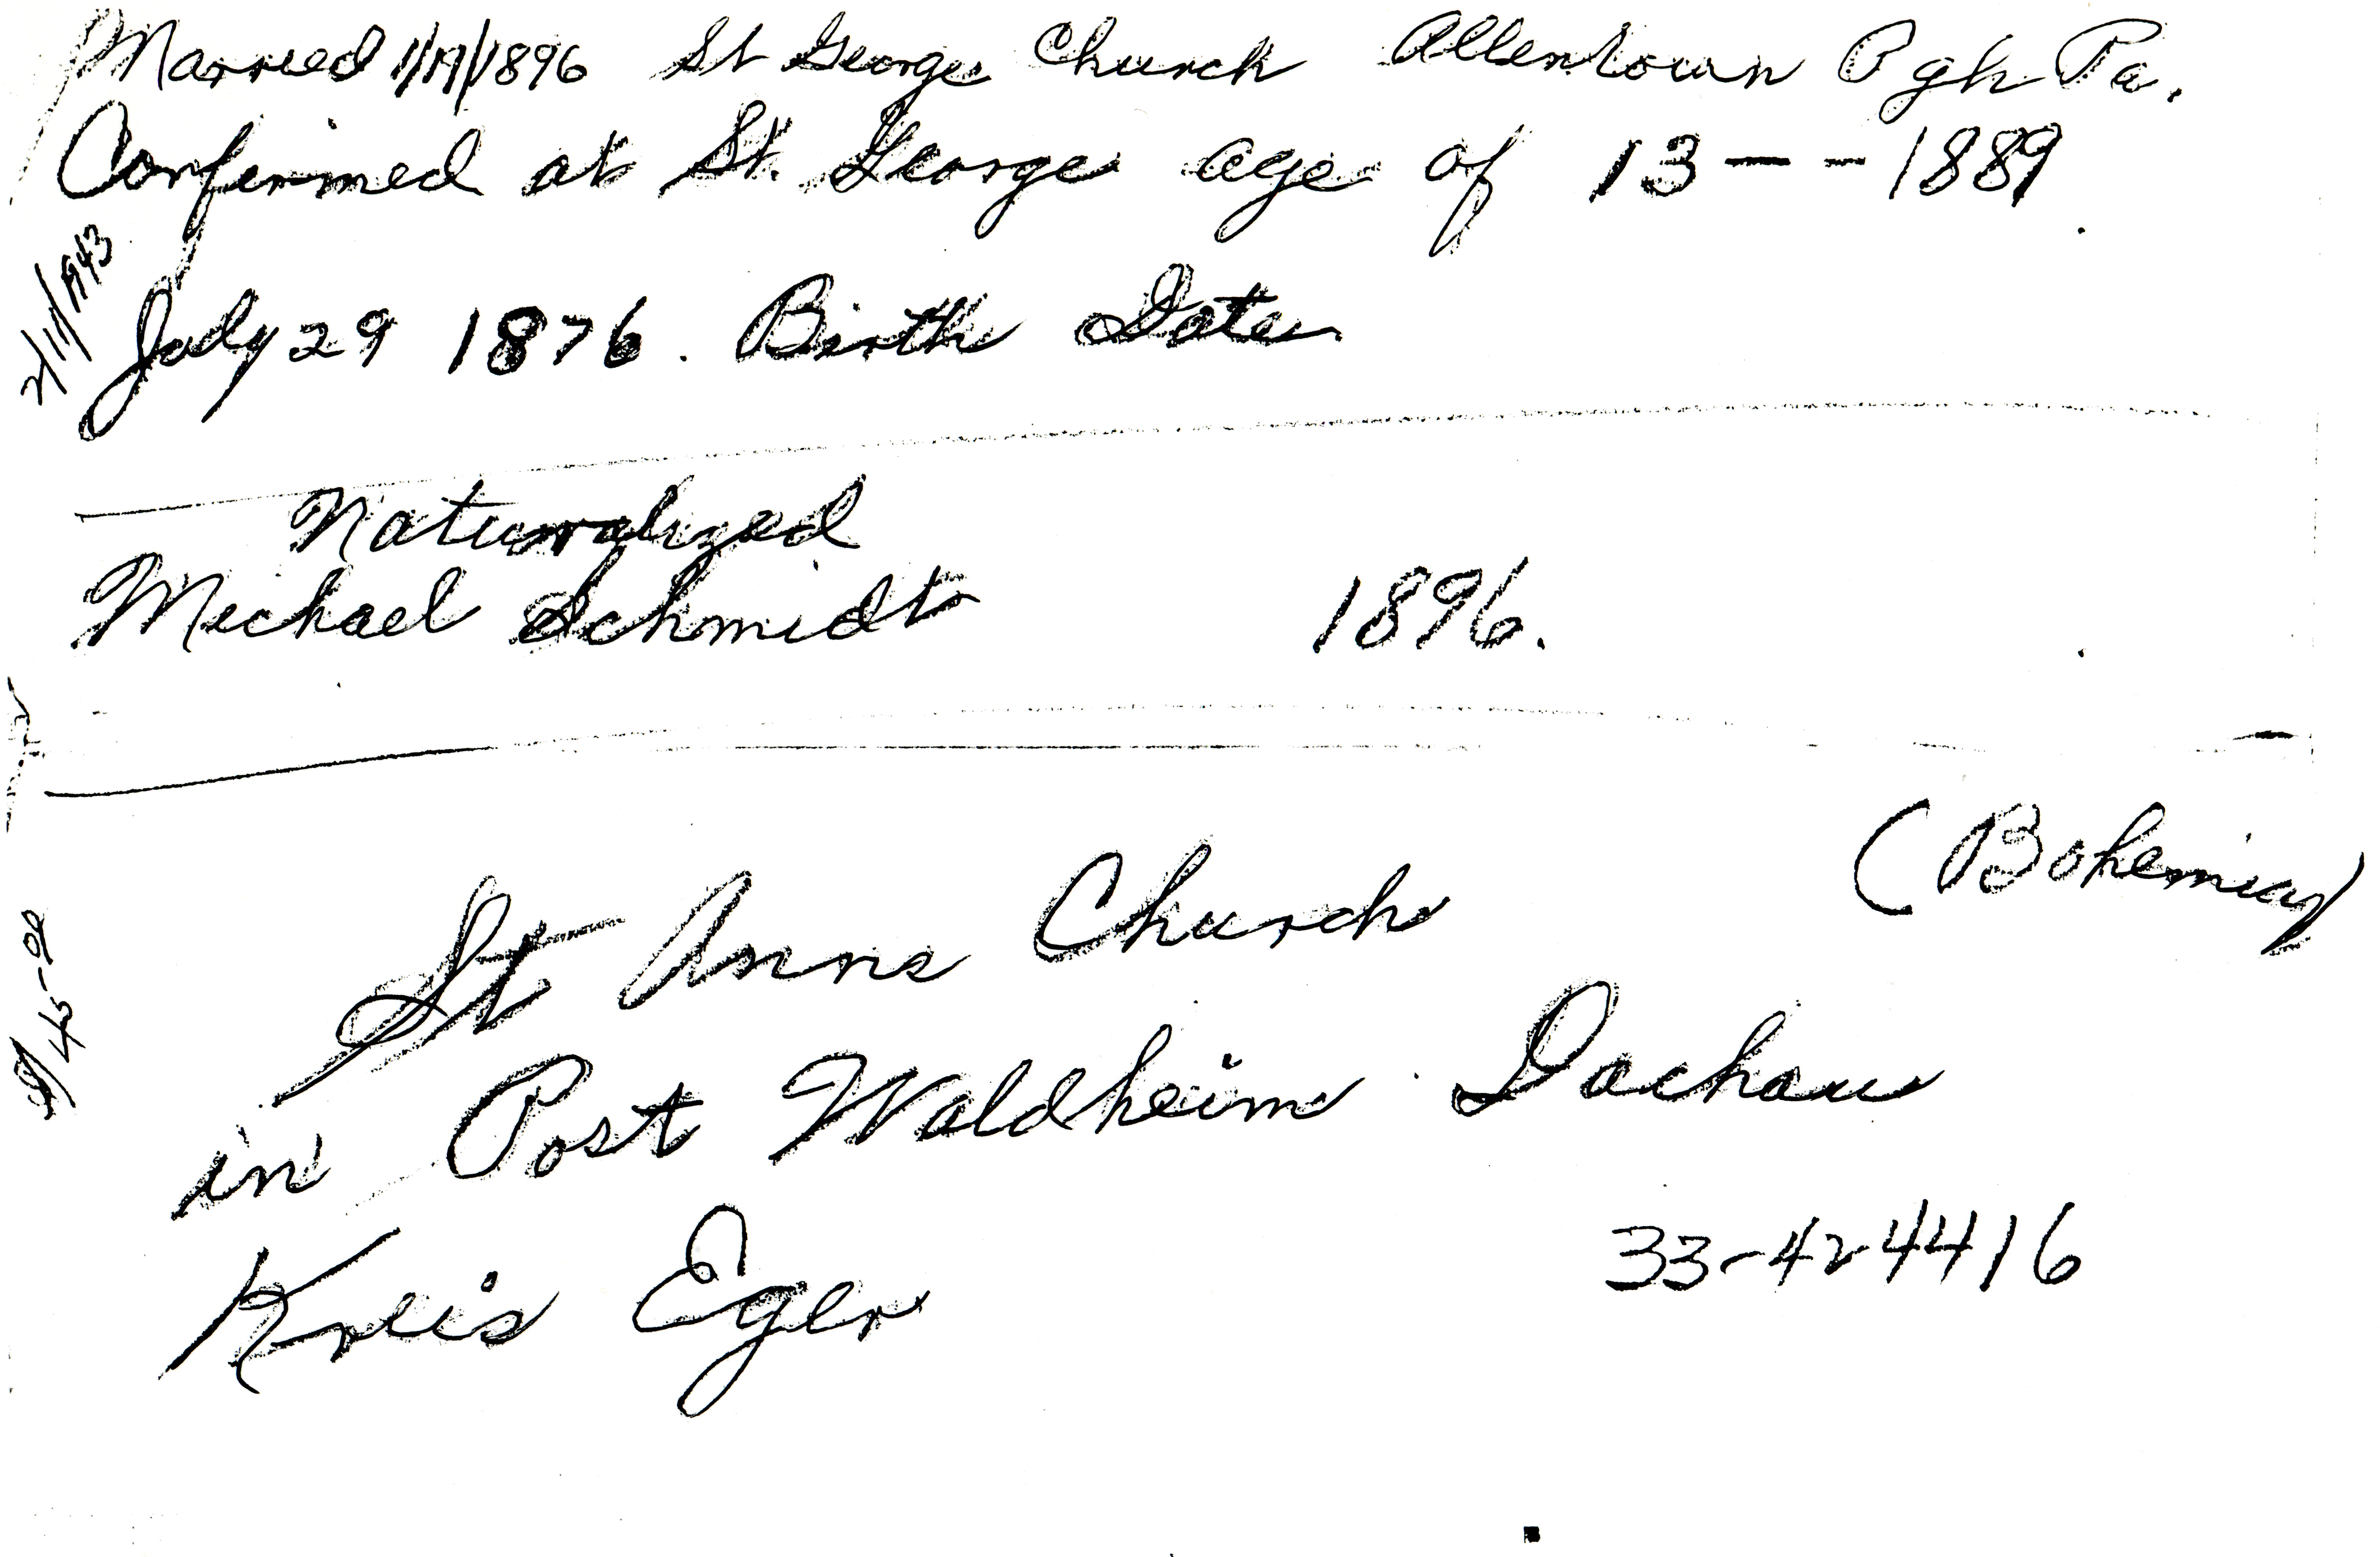 Married 1/19/1896 St George Church Allentown Pgh Pa.
Confirmed at St. George age of 13 - - 1889
2/11/1943
July 29 1876. Birth Date
Naturalized
Michael Schmidt 1896.
(Bohemia)
St Anns Church
in Post Waldheim Dachau
Kreis Eger
33-424416